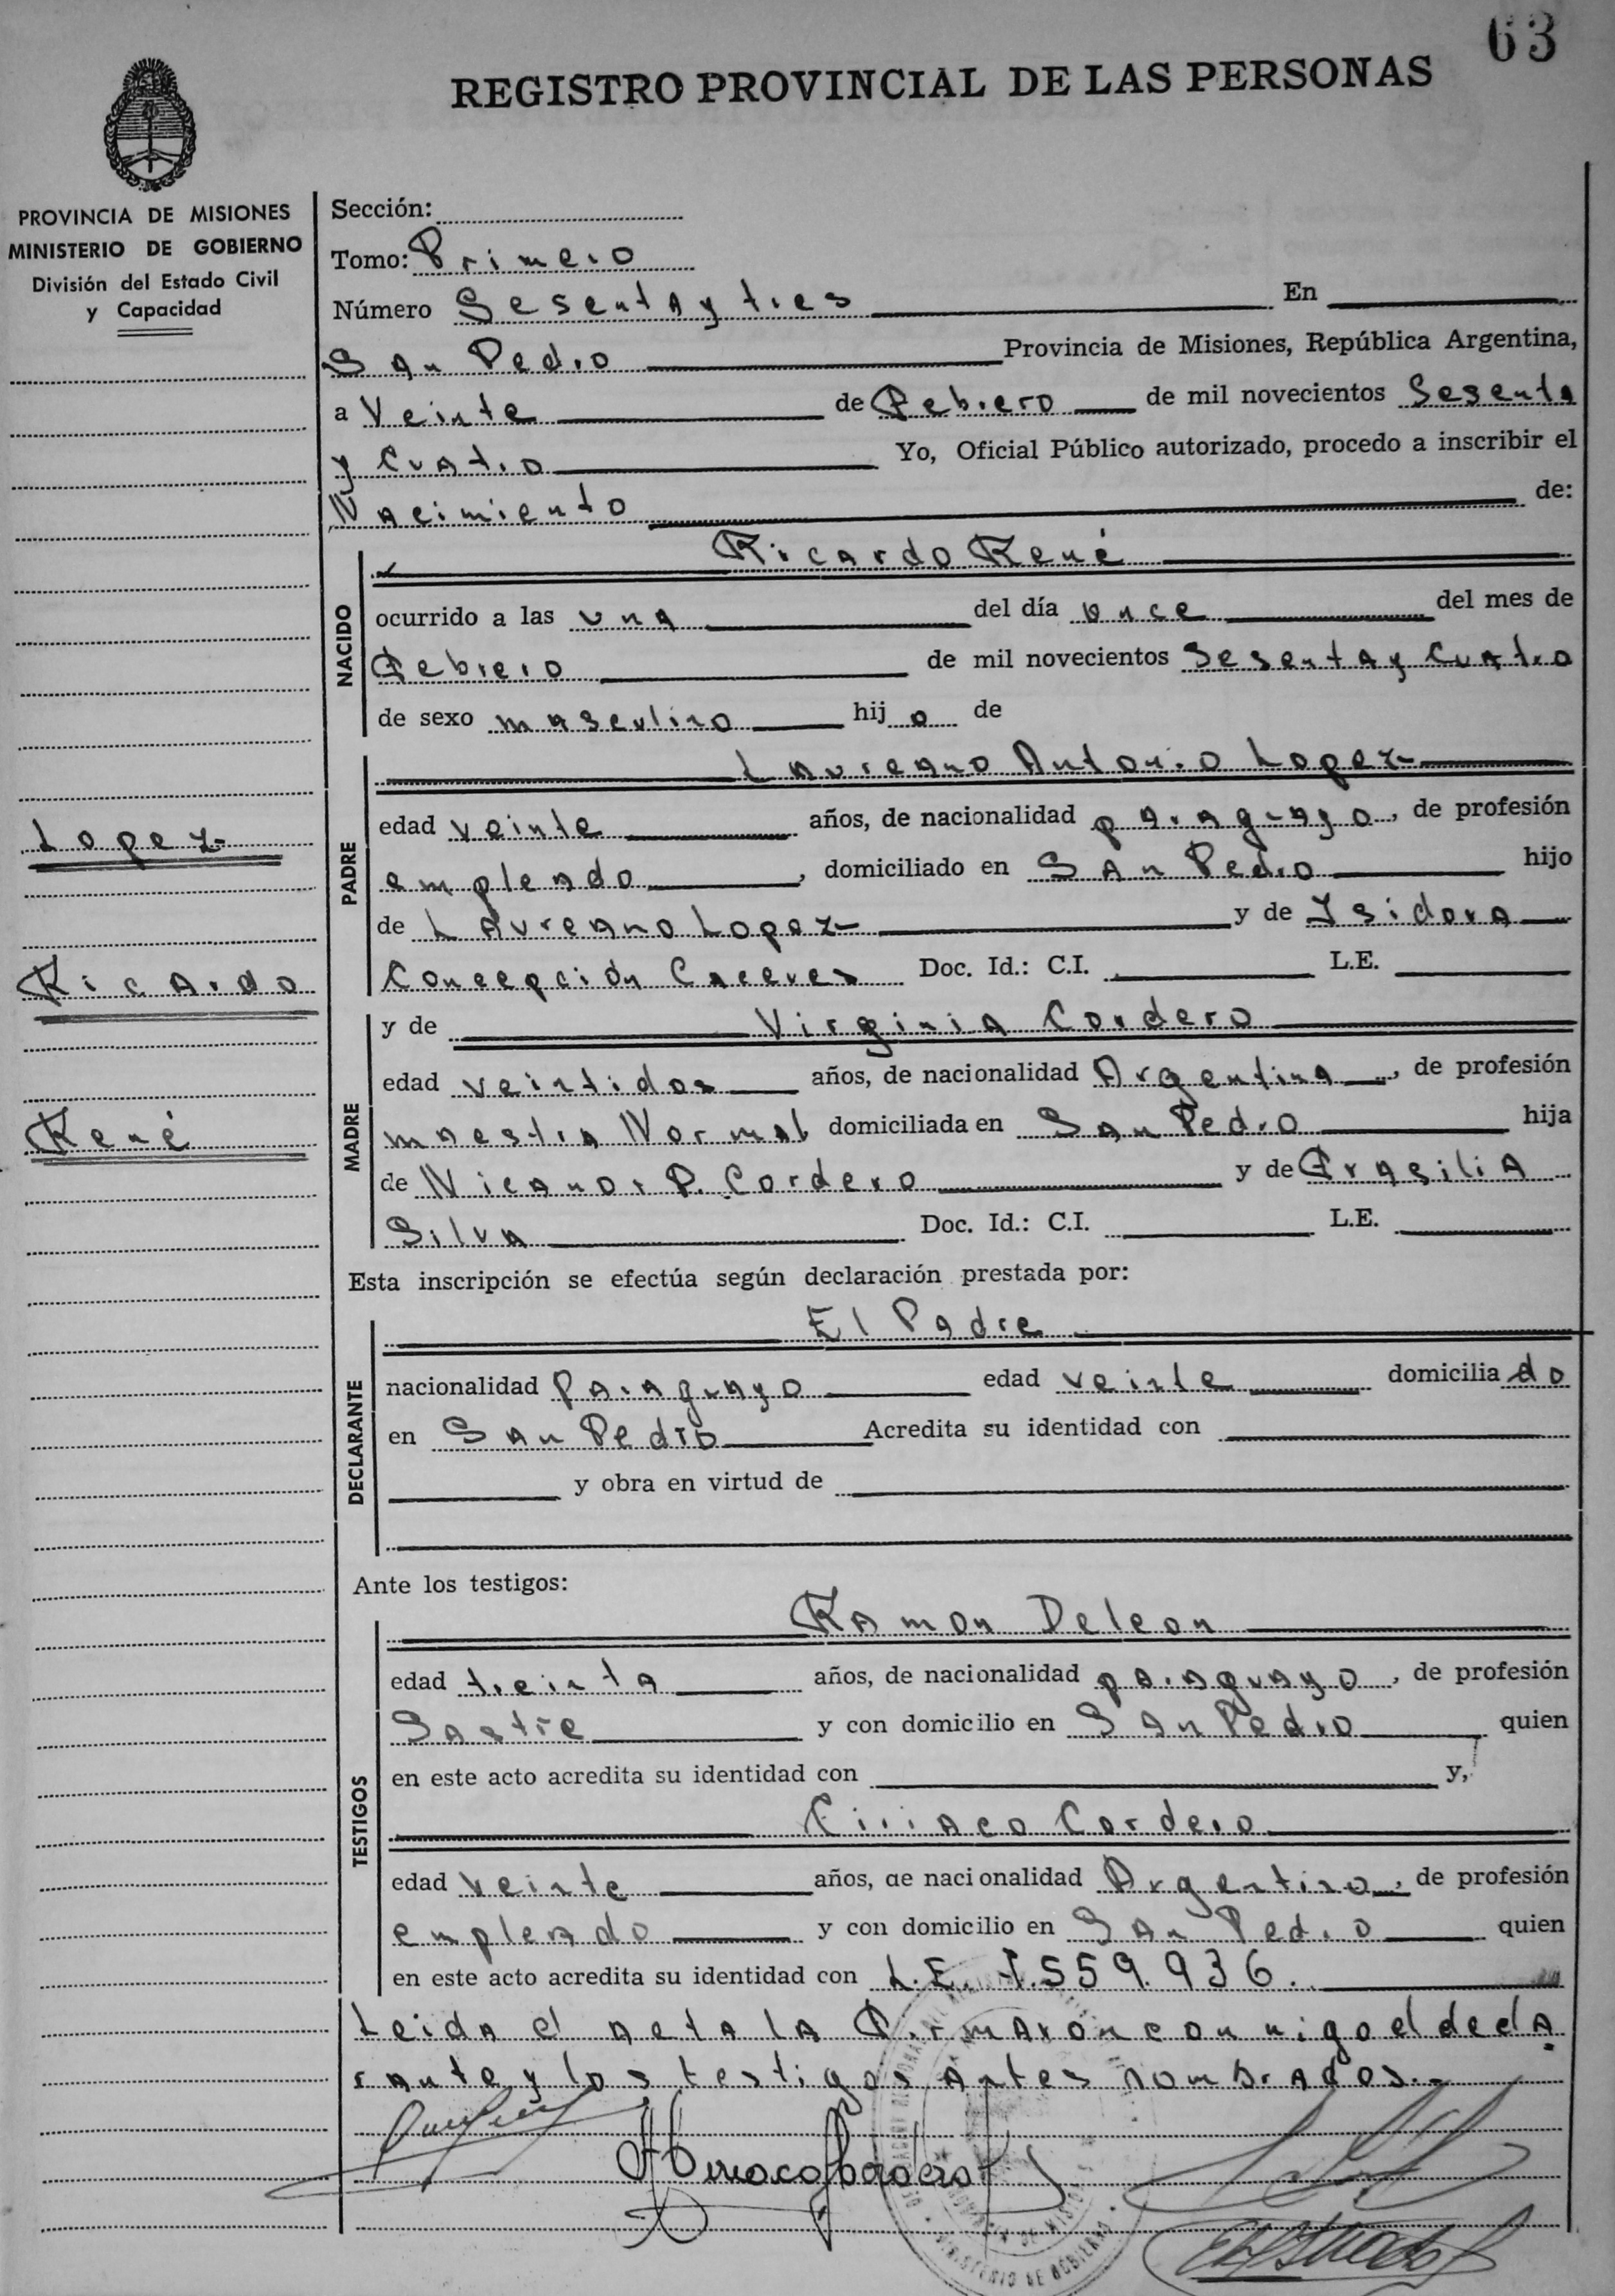 63
REGISTRO PROVINCIAL DE LAS PERSONAS
PROVINCIA DE MISIONES
MINISTERIO DE GOBIERNO
División del Estado Civil
y Capacidad
Lopez
Ricardo
René
Sección:
Tomo: Primero
Número Sesenta y tres En
San Pedro Provincia de Misiones, República Argentina,
a Veinte de Febrero de mil novecientos Sesenta
y Cuatro Yo, Oficial Público autorizado, procedo a inscribir el
Nacimiento de:
NACIDO
Ricardo René
ocurrido a las una del día once del mes de
Febrero de mil novecientos Sesenta y Cuatro
de sexo masculino hijo de
PADRE
Laureano Antonio Lopez
edad veinte años, de nacionalidad paraguayo, de profesión
empleado, domiciliado en San Pedro hijo
de Laureano Lopez y de Isidora
Concepción Caceres Doc. Id.: C.I. L.E.
MADRE
y de Virginia Cordero
edad veintidos años, de nacionalidad Argentina, de profesión
maestra Normal domiciliada en San Pedro hija
de Nicanor P. Cordero y de
Silva Doc. Id.: C.I. L.E.
Esta inscripción se efectúa según declaración prestada por:
DECLARANTE
El Padre
nacionalidad paraguayo edad veinte domiciliado
en San Pedro Acredita su identidad con
y obra en virtud de
Ante los testigos:
TESTIGOS
Ramon Deleon
edad treinta años, de nacionalidad paraguayo, de profesión
Sastre y con domicilio en San Pedro quien
en este acto acredita su identidad con y,
Ciriaco Cordero
edad veinte años, de nacionalidad Argentino, de profesión
empleado y con domicilio en San Pedro quien
en este acto acredita su identidad con L.E. 7.559.936.
Leida el acta la firmaron conmigo el decla
rante y los testigos antes nombrados.-
Ciriaco Cordero
MINISTERIO DE GOBIERNO